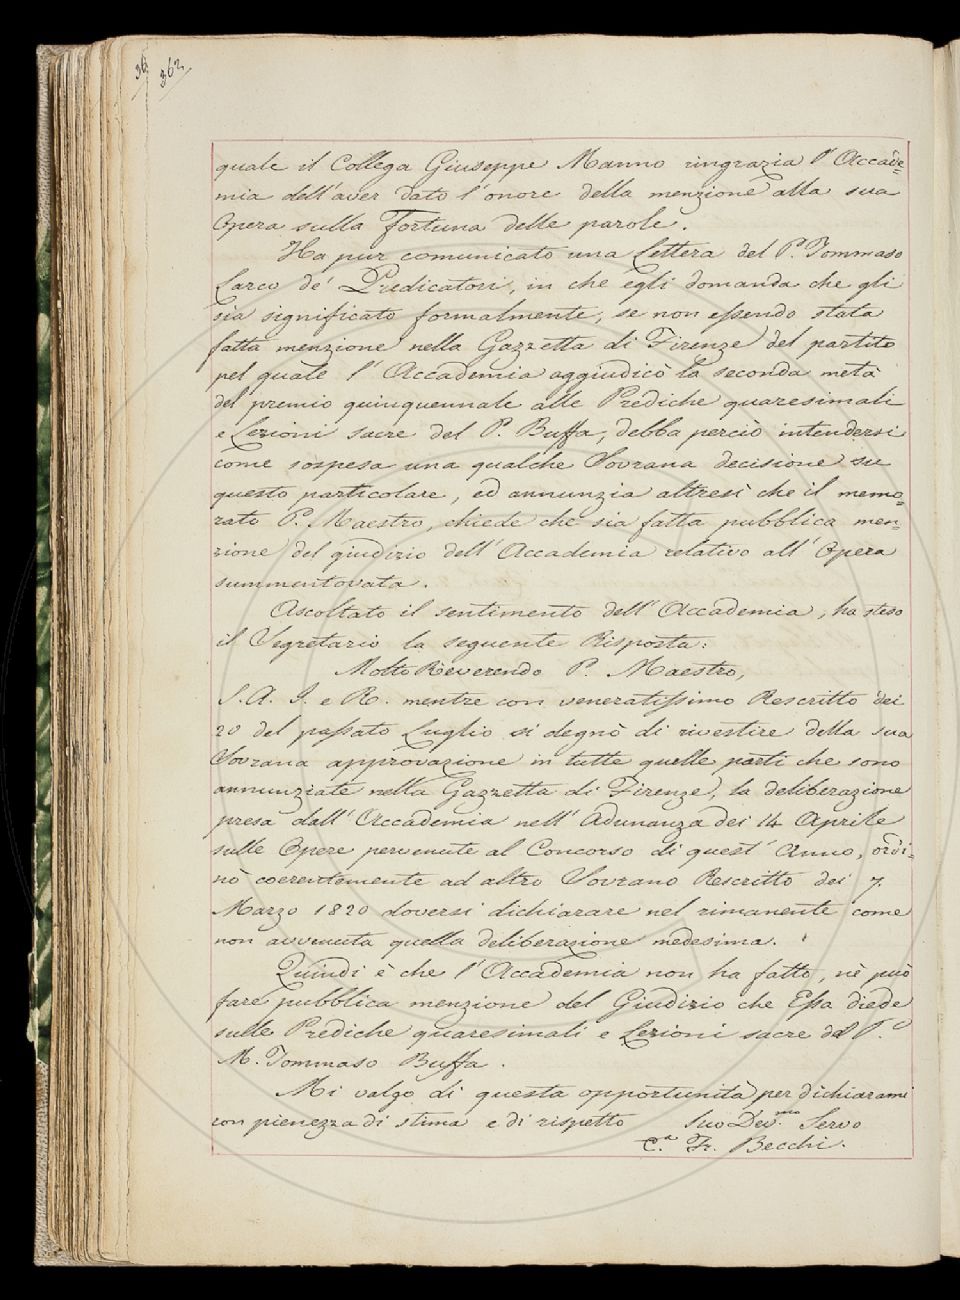 36 362
quale il Collega Giuseppe Manno ringrazia l'Accade=
mia dell'aver dato l'onore della menzione alla sua
Opera sulla Fortuna delle parole.
Ha pur comunicato una Lettera del P. Tommaso
Larco de' Predicatori, in che egli domanda che gli
sia significato formalmente, se non essendo stata
fatta menzione nella Gazzetta di Firenze del partito
pel quale l'Accademia aggiudicò la seconda metà
del premio quinquennale alle Prediche quaresimali
e Lezioni sacre del P. Buffa, debba perciò intendersi
come sospesa una qualche Sovrana decisione su
questo particolare, ed annunzia altresì che il memo=
rato P. Maestro, chiede che sia fatta pubblica men=
zione del giudizio dell'Accademia relativo all'Opera
summentovata.
Ascoltato il sentimento dell'Accademia, ha steso
il Segretario la seguente Risposta:
Molto Reverendo P. Maestro,
S. A. I. e R. mentre con veneratissimo Rescritto dei
20 del passato Luglio si degnò di rivestire della sua
Sovrana approvazione in tutte quelle parti che sono
annunziate nella Gazzetta di Firenze, la deliberazione
presa dall'Accademia nell'Adunanza dei 14 Aprile
sulle Opere pervenute al Concorso di quest'Anno, ordi=
nò coerentemente ad altro Sovrano Rescritto dei 7
Marzo 1820 doversi dichiarare nel rimanente come
non avvenuta quella deliberazione medesima.
Quindi è che l'Accademia non ha fatto, nè può
fare pubblica menzione del Giudizio che Essa diede
sulle Prediche quaresimali e Lezioni sacre del P.
M. Tommaso Buffa.
Mi valgo di questa opportunità per dichiararmi
con pienezza di stima e di rispetto Suo Dev.mo Servo
C.a Fr. Becchi.